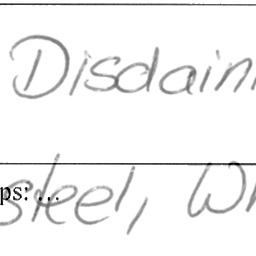 Disdain
ps: ...
steel, Wh